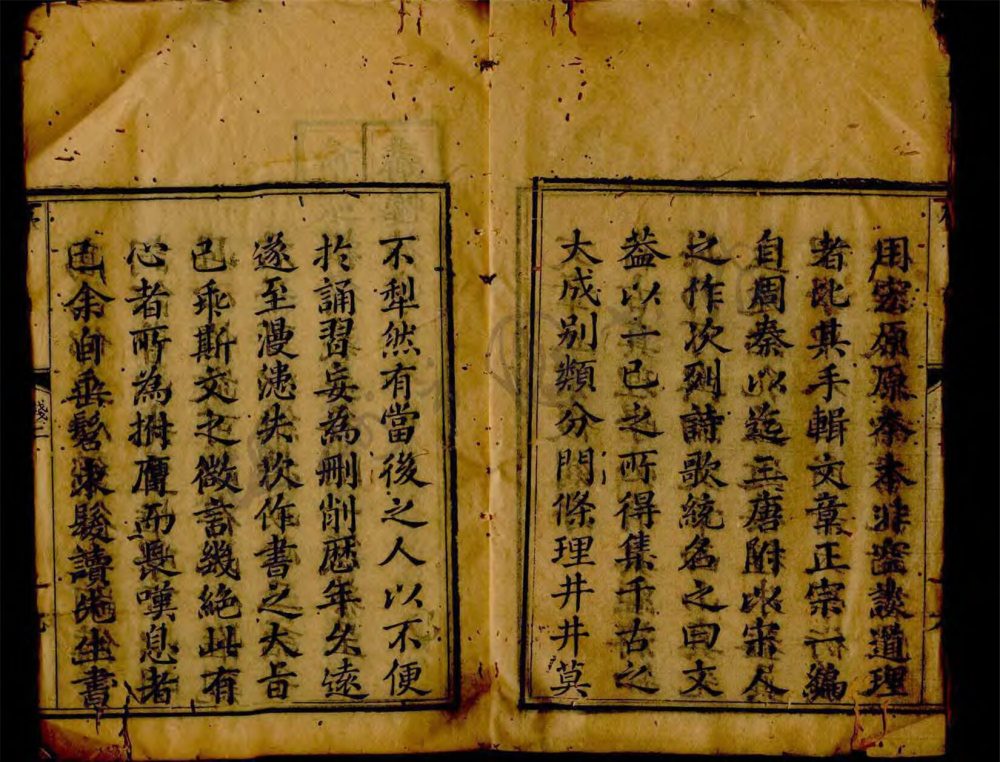 用宏原原本本非空談道理
者比其手輯文章正宗一編
自周秦以迄三唐附以宋人
之作次列詩歌統名之曰文
葢以一已之所得集千古之
大成别類分門條理井井莫
不犁然有當後之人以不便
於誦習妄為刪削歴年久遠
遂至漫漶失次作書之大旨
已乖斯文之微言幾絶此有
心者所為拊膺而長嘆息者
也余自垂髫束髮讀先生書